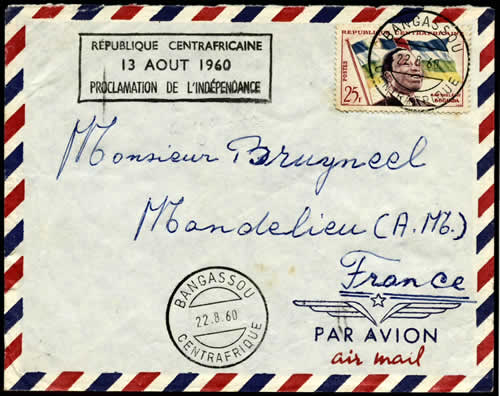 RÉPUBLIQUE CENTRAFRICAINE
13 AOUT 1960
PROCLAMATION DE L'INDÉPENDANCE
RÉPUBLIQUE CENTRAFRICAINE
POSTES
25F
BOGANDA
BANGASSOU
22.8.60
CENTRAFRIQUE
Monsieur Bruyneel
Mandelieu (A.M.)
France
BANGASSOU
22.8.60
CENTRAFRIQUE
PAR AVION
air mail